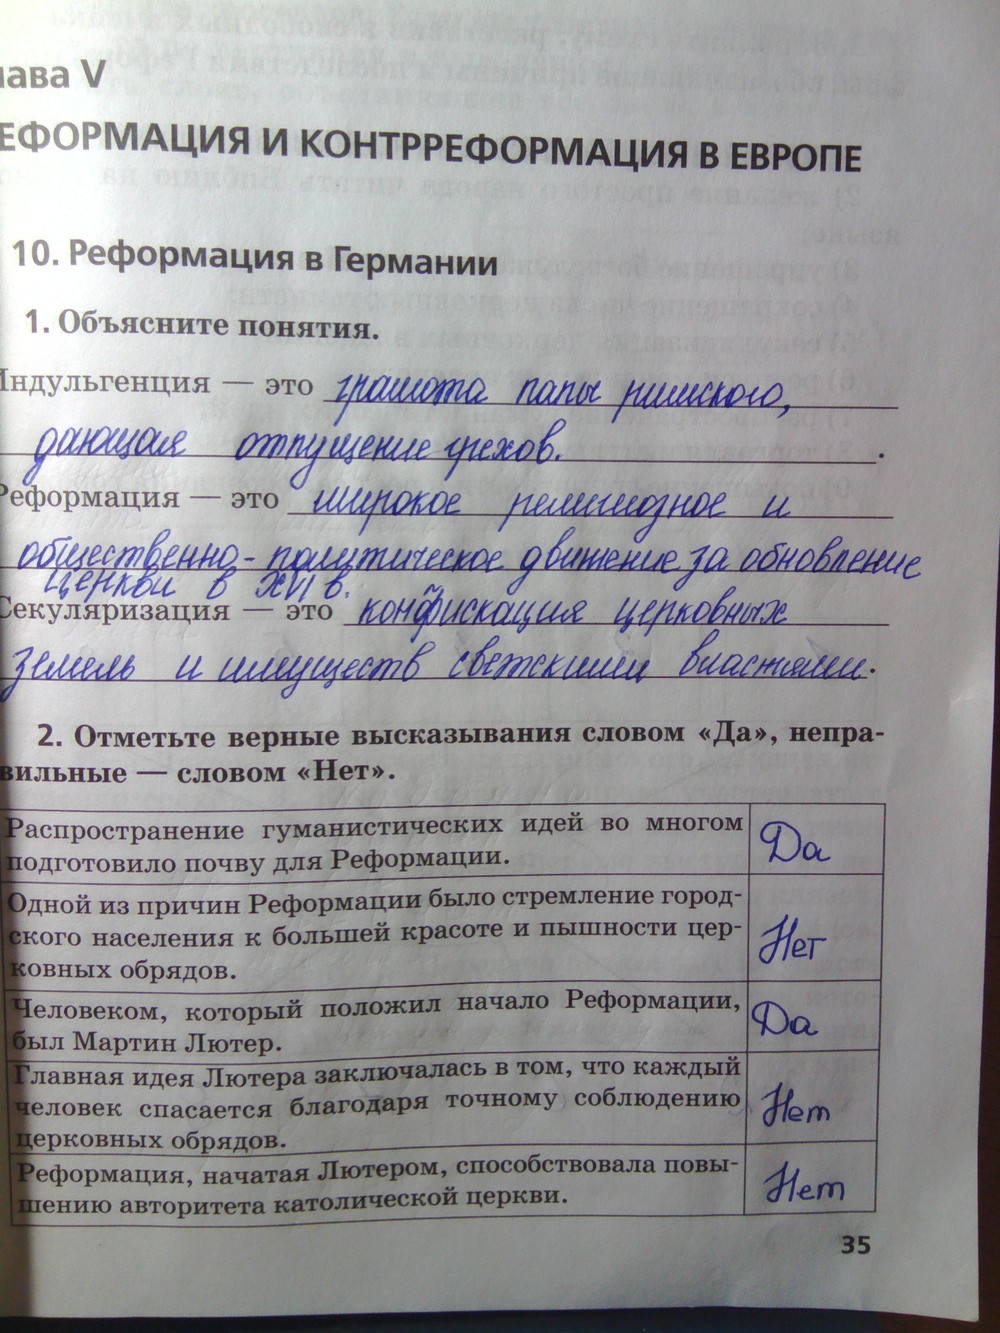 лава V
ЕФОРМАЦИЯ И КОНТРРЕФОРМАЦИЯ В ЕВРОПЕ
10. Реформация в Германии
1. Объясните понятия.
Индульгенция — это грамота папы римского,
дающая отпущение грехов.
Реформация — это широкое религиозное и
общественно-политическое движение за обновление
церкви в XVI в.
Секуляризация — это конфискация церковных
земель и имуществ светскими властями.
2. Отметьте верные высказывания словом «Да», непра-
вильные — словом «Нет».
Распространение гуманистических идей во многом
подготовило почву для Реформации.
Да
Одной из причин Реформации было стремление город-
ского населения к большей красоте и пышности цер-
ковных обрядов.
Нет
Человеком, который положил начало Реформации,
был Мартин Лютер.
Да
Главная идея Лютера заключалась в том, что каждый
человек спасается благодаря точному соблюдению
церковных обрядов.
Нет
Реформация, начатая Лютером, способствовала повы-
шению авторитета католической церкви.
Нет
35